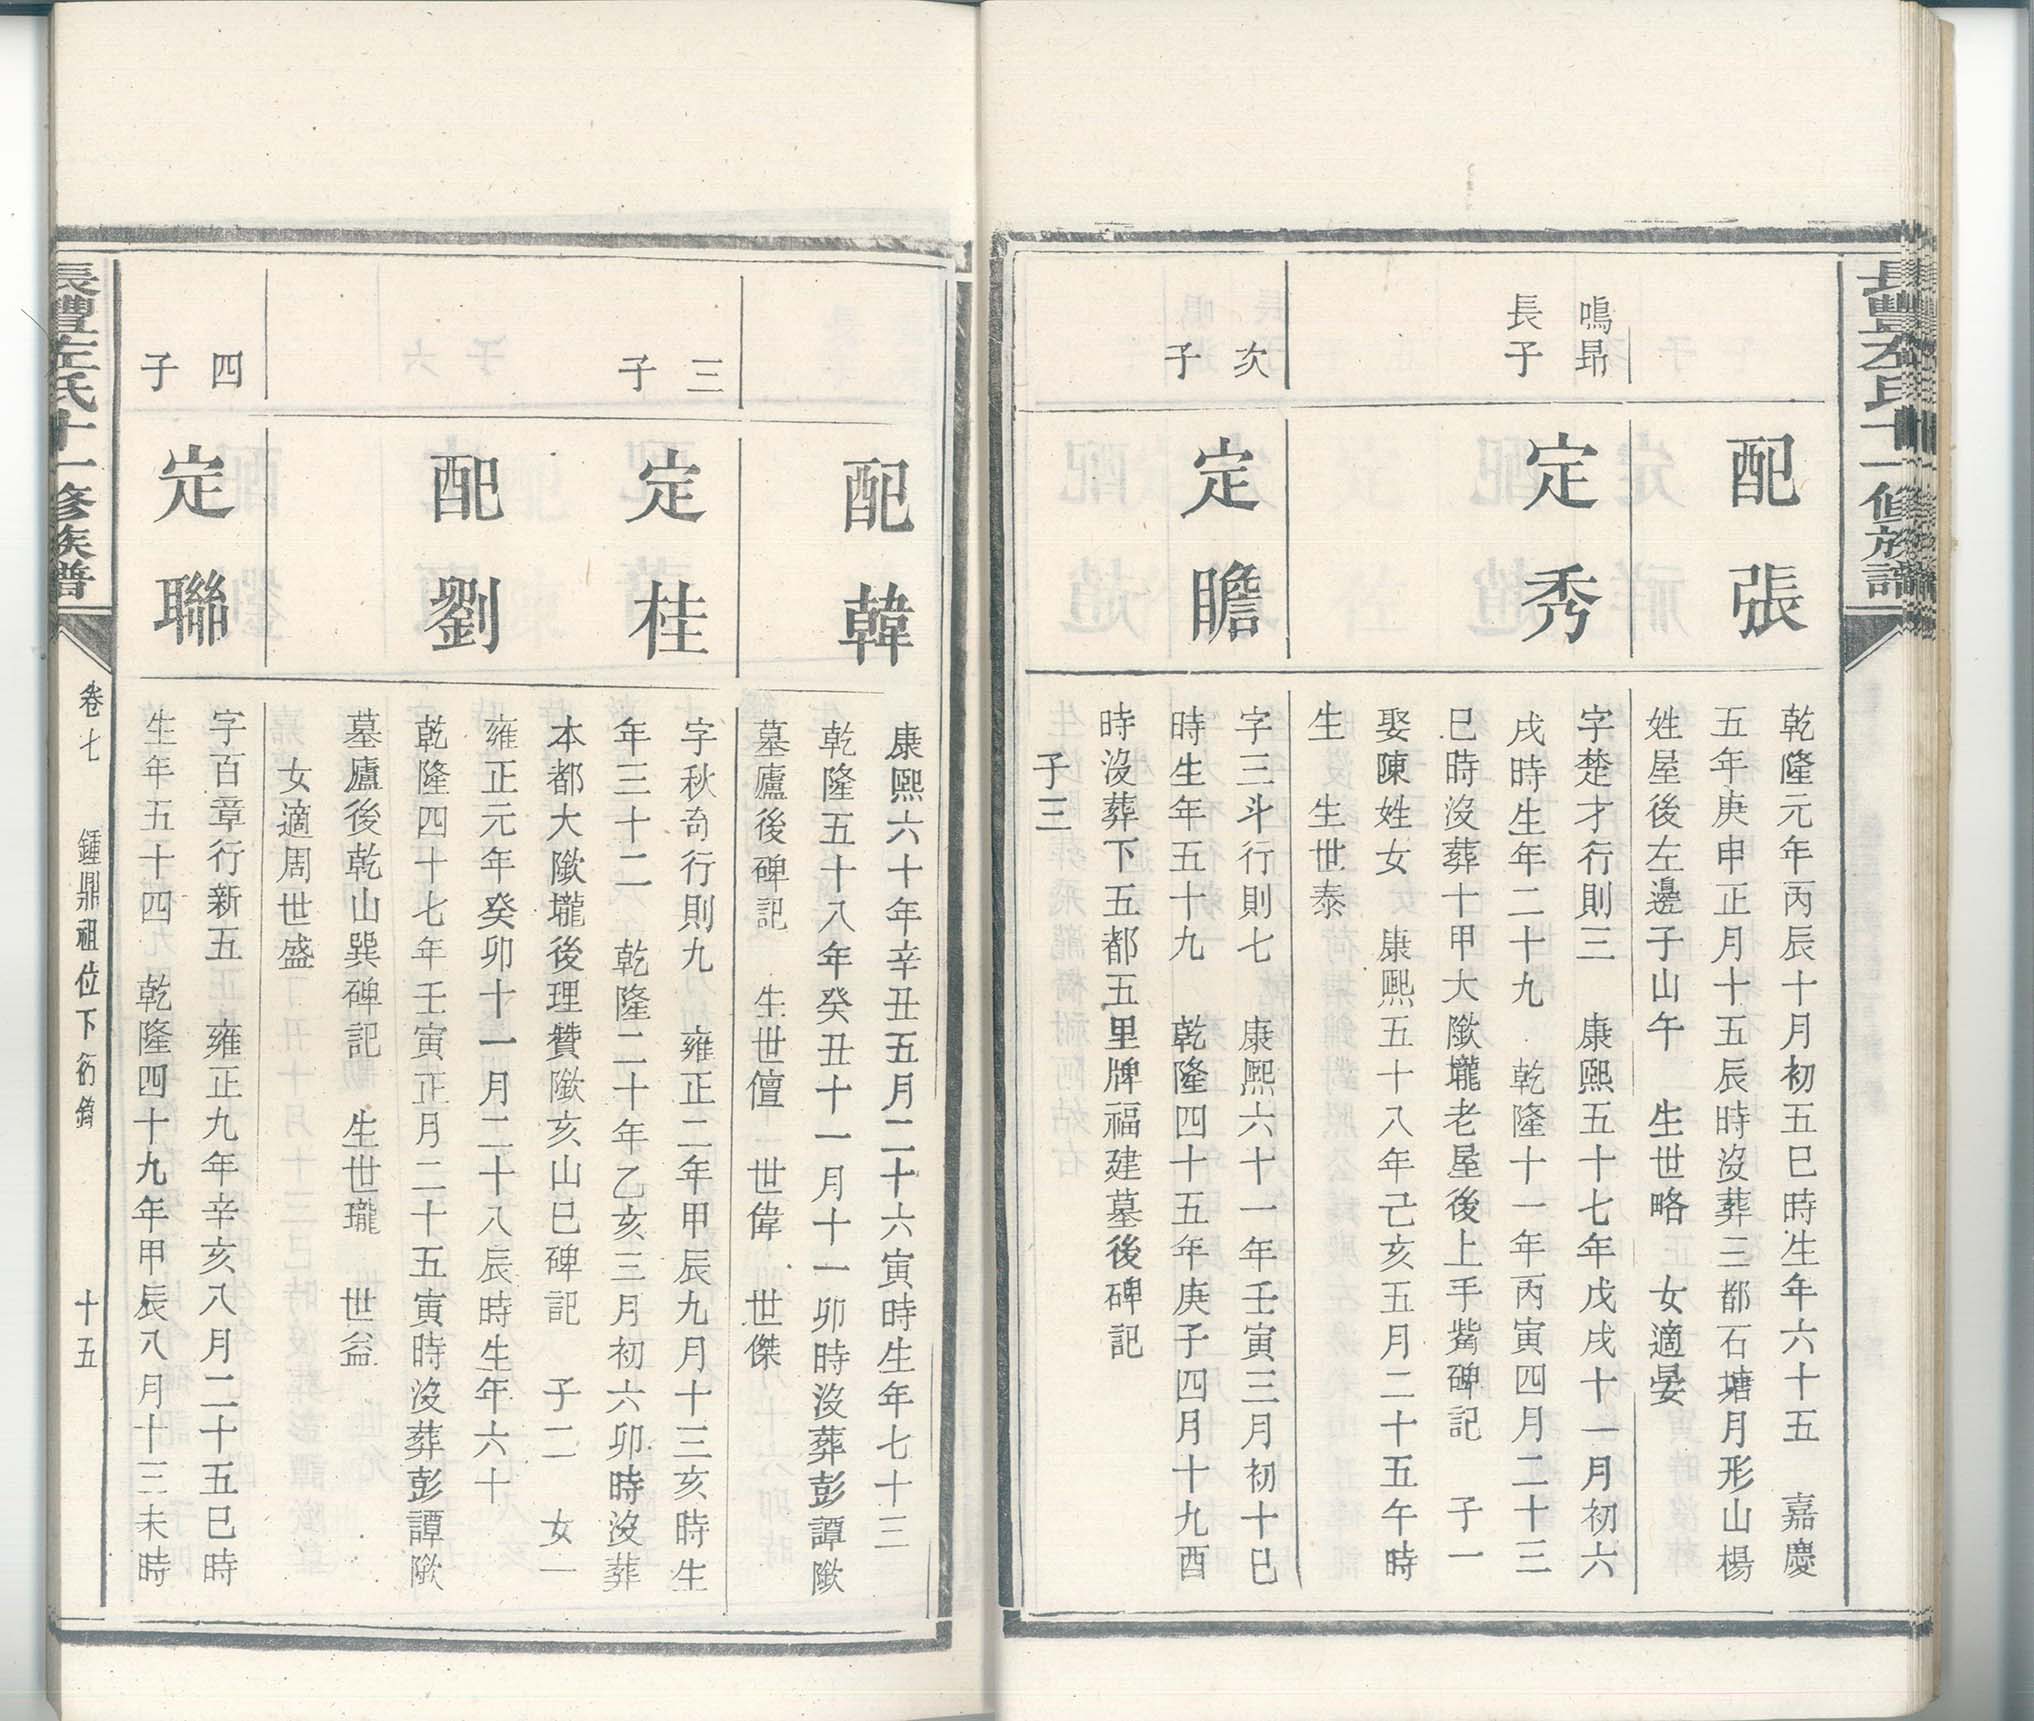 長豐左氏十一修族譜
配張
乾隆元年丙辰十月初五巳時生年六十五　嘉慶
五年庚申正月十五辰時沒葬三都石塘月形山楊
姓屋後左邊子山午　生世略　女適晏
鳴昻
長子
定秀
字楚才行則三　康熙五十七年戊戌十一月初六
戌時生年二十九　乾隆十一年丙寅四月二十三
巳時沒葬十甲大隞壠老屋後上手觜碑記　子一
娶陳姓女　康熙五十八年己亥五月二十五午時
生　生世泰
次
子
定瞻
字三斗行則七　康熙六十一年壬寅三月初十巳
時生年五十九　乾隆四十五年庚子四月十九酉
時沒葬下五都五里牌福建墓後碑記
子三
配韓
康熙六十年辛丑五月二十六寅時生年七十三
乾隆五十八年癸丑十一月十一卯時沒葬彭譚隞
墓廬後碑記　生世儃　世偉　世傑
三
子
定桂
字秋奇行則九　雍正二年甲辰九月十三亥時生
年三十二　乾隆二十年乙亥三月初六卯時沒葬
本都大隞壠後理贊隞亥山巳碑記　子二　女一
配劉
雍正元年癸卯十一月二十八辰時生年六十
乾隆四十七年壬寅正月二十五寅時沒葬彭譚隞
墓廬後乾山巽碑記　生世瓏　世益
女適周世盛
四
子
定聯
字百章行新五　雍正九年辛亥八月二十五巳時
生年五十四　乾隆四十九年甲辰八月十三未時
長豐左氏十一修族譜
卷七　鍾鼎祖位下衍脩　十五